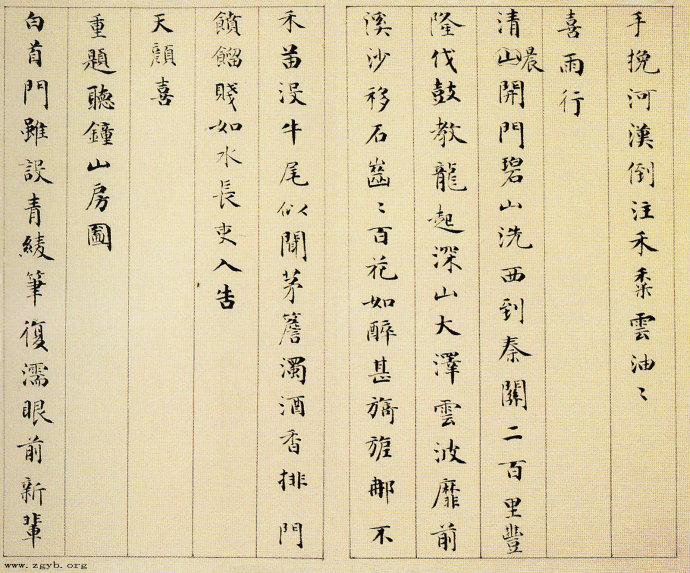 手挽河漢倒注禾黍雲油〻
喜雨行
清山晨開門碧山洗西到秦關二百里豐
隆伐鼓教龍起深山大澤雲波靡前
溪沙移石齒〻百花如醉甚旖旎那不
禾苗沒牛尾似聞茅簷濁酒香排門
饋餾賤如水長吏入告
天顏喜
重題聽鐘山房圖
白首門雖設青綾筆復濡眼前新輩
www.zgyb.org